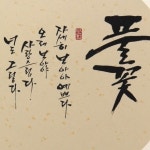 풀꽃
자세히 보아야 예쁘다.
오래 보아야
사랑스럽다.
너도 그렇다.